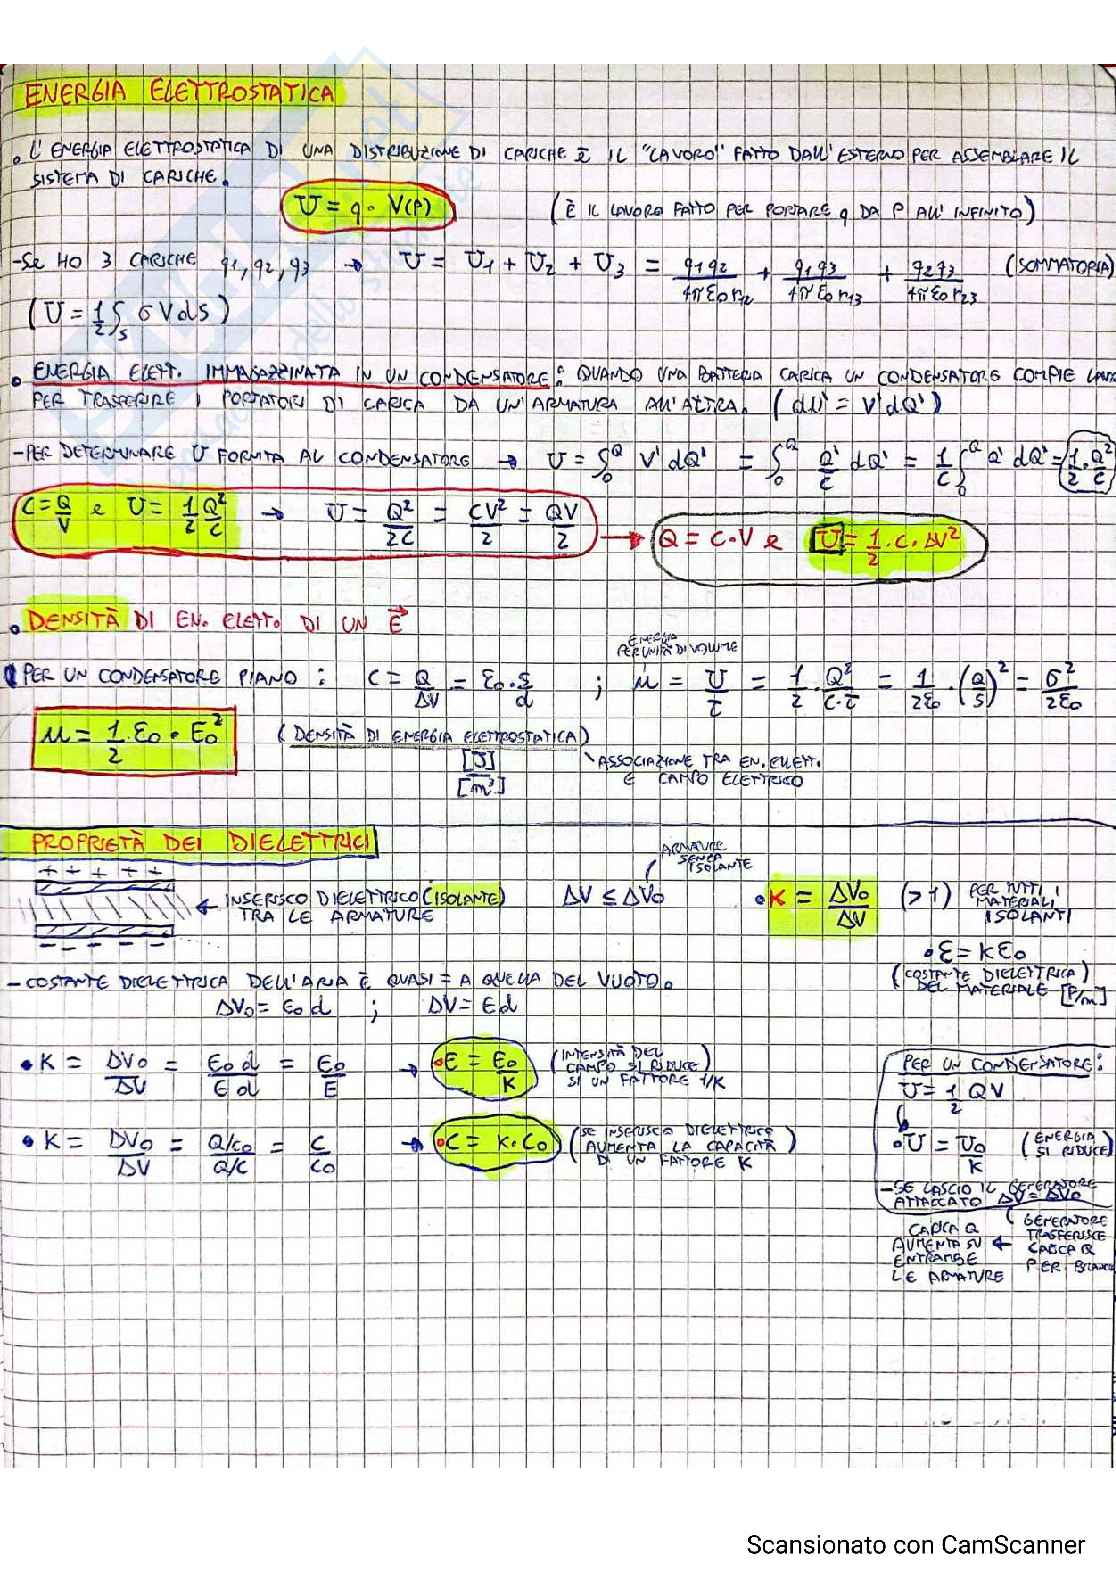 ENERGIA ELETTROSTATICA
• L'ENERGIA ELETTROSTATICA DI UNA DISTRIBUZIONE DI CARICHE È IL "LAVORO" FATTO DALL'ESTERNO PER ASSEMBLARE IL
SISTEMA DI CARICHE.
U = q · V(P) (È IL LAVORO FATTO PER PORTARE q DA P ALL'INFINITO)
- SE HO 3 CARICHE q1, q2, q3 → U = U1 + U2 + U3 = q1q2/4πε0r12 + q1q3/4πε0r13 + q2q3/4πε0r23 (SOMMATORIA)
(U = 1/2 ∫s σVdS)
• ENERGIA ELETT. IMMAGAZZINATA IN UN CONDENSATORE: QUANDO UNA BATTERIA CARICA UN CONDENSATORE COMPIE
PER TRASFERIRE I PORTATORI DI CARICA DA UN'ARMATURA ALL'ALTRA. (dU' = V'dQ')
- PER DETERMINARE U FORNITA AL CONDENSATORE → U = ∫0Q V'dQ' = ∫0Q Q'/C dQ' = 1/C ∫0Q Q'dQ' = 1/2 · Q²/C
C = Q/V e U = 1/2 Q²/C → U = Q²/2C = CV²/2 = QV/2 → Q = C·V e U = 1/2 · C · ΔV²
• DENSITÀ DI EN. ELETT. DI UN E⃗
ENERGIA
PER UNITÀ DI VOLUME
PER UN CONDENSATORE PIANO: C = Q/ΔV = ε0 · S/d ; u = U/τ = 1/2 · Q²/C·τ = 1/2ε0 · (Q/S)² = σ²/2ε0
u = 1/2 · ε0 · E0² (DENSITÀ DI ENERGIA ELETTROSTATICA)
[J]/[m³]
ASSOCIAZIONE TRA EN. ELETT.
E CAMPO ELETTRICO
PROPRIETÀ DEI DIELETTRICI
+ + + + +
ARMATURE
SENZA
ISOLANTE
← INSERISCO DIELETTRICO (ISOLANTE)
TRA LE ARMATURE
ΔV ≤ ΔV0
• K = ΔV0/ΔV (>1) PER TUTTI I
MATERIALI
ISOLANTI
- - - - -
• ε = Kε0
(COSTANTE DIELETTRICA)
DEL MATERIALE [F/m]
- COSTANTE DIELETTRICA DELL'ARIA È QUASI = A QUELLA DEL VUOTO.
ΔV0 = E0 d ; ΔV = Ed
• K = ΔV0/ΔV = E0 d/E d = E0/E → • E = E0/K (INTENSITÀ DEL
CAMPO SI RIDUCE)
SI UN FATTORE 1/K
• K = ΔV0/ΔV = Q/C0/Q/C = C/C0 → • C = K · C0 (SE INSERISCO DIELETTRICO
AUMENTA LA CAPACITÀ)
DI UN FATTORE K
PER UN CONDENSATORE:
U = 1/2 QV
• U = U0/K (ENERGIA
SI RIDUCE)
- SE LASCIO IL GENERATORE
ATTACCATO ΔV = ΔV0
GENERATORE
TRASFERISCE
CARICA Q
PER
← CARICA Q
AUMENTA SU
ENTRAMBE
LE ARMATURE
Scansionato con CamScanner